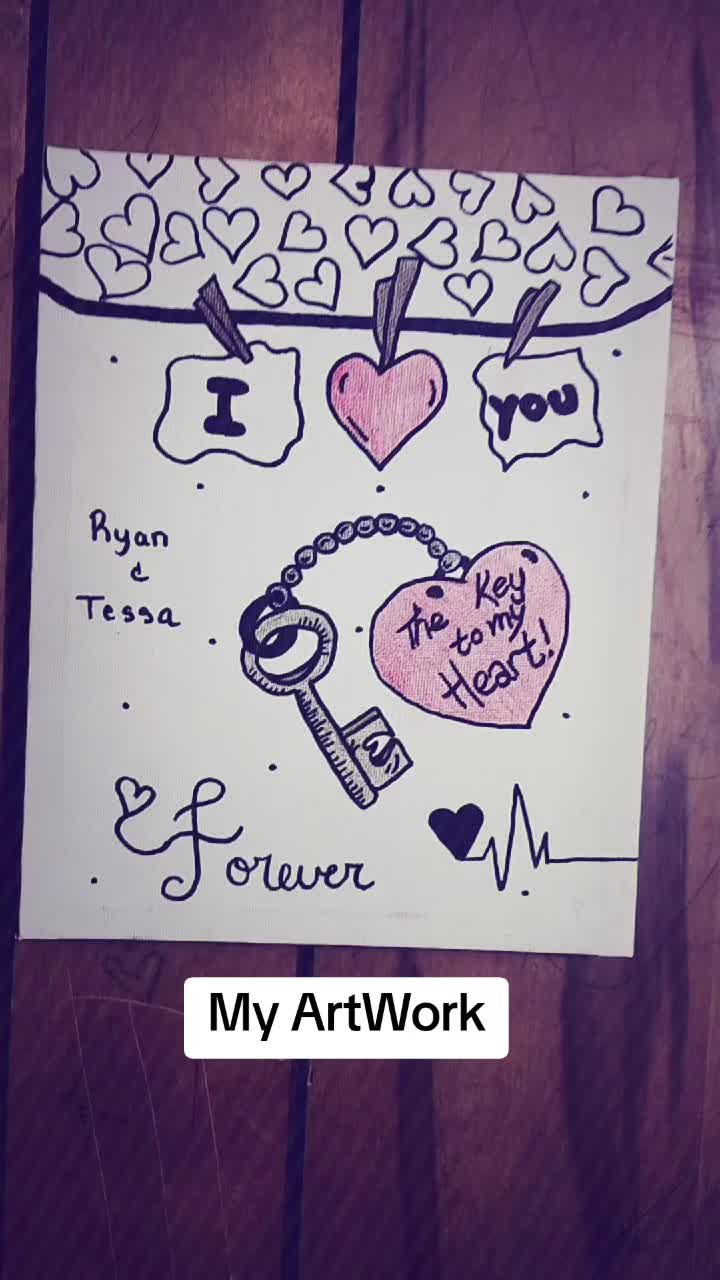 I
YOU
Ryan
&
Tessa
The Key
to my
Heart!
Forever
My ArtWork